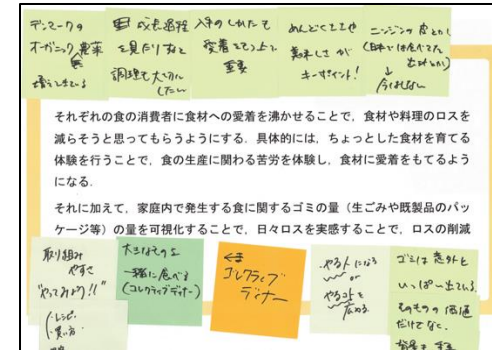 デンマークの
オーガニック農業
増えてきている
成長過程
を見たりすると
調理も大切に
したい
入手のしかたで
愛着をもつ上で
重要
めんどくささや
美味しさが
キーポイント!
ニンジンの皮とか
↓
それぞれの食の消費者に食材への愛着を沸かせることで，食材や料理のロスを
減らそうと思ってもらうようにする．具体的には，ちょっとした食材を育てる
体験を行うことで，食の生産に関わる苦労を体験し，食材に愛着をもてるよう
になる．
それに加えて，家庭内で発生する食に関するゴミの量（生ごみや既製品のパッ
ケージ等）の量を可視化することで，日々ロスを実感することで，ロスの削減
取り組み
やすさ
"やってみよう!!"
・レシピ
・買い方
一緒に食べる
(コレクティブディナー)
コレクティブ
ディナー
やる人になる
or
やるコトを
広める
ゴミは意外と
いっぱい出ている
そのものの価値
だけでなく、